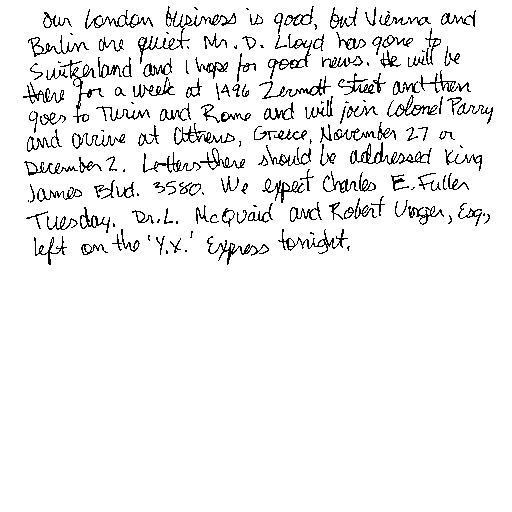 Our London business is good, but Vienna and
Berlin are quiet. Mr. D. Lloyd has gone to
Switzerland and I hope for good news. He will be
there for a week at 1496 Zermott Street and then
goes to Turin and Rome and will join Colonel Parry
and arrive at Athens, Greece, November 27 or
December 2. Letters there should be addressed King
James Blvd. 3580. We expect Charles E. Fuller
Tuesday. Dr. L. McQuaid and Robert Unger, Esq.,
left on the 'Y.X.' Express tonight.